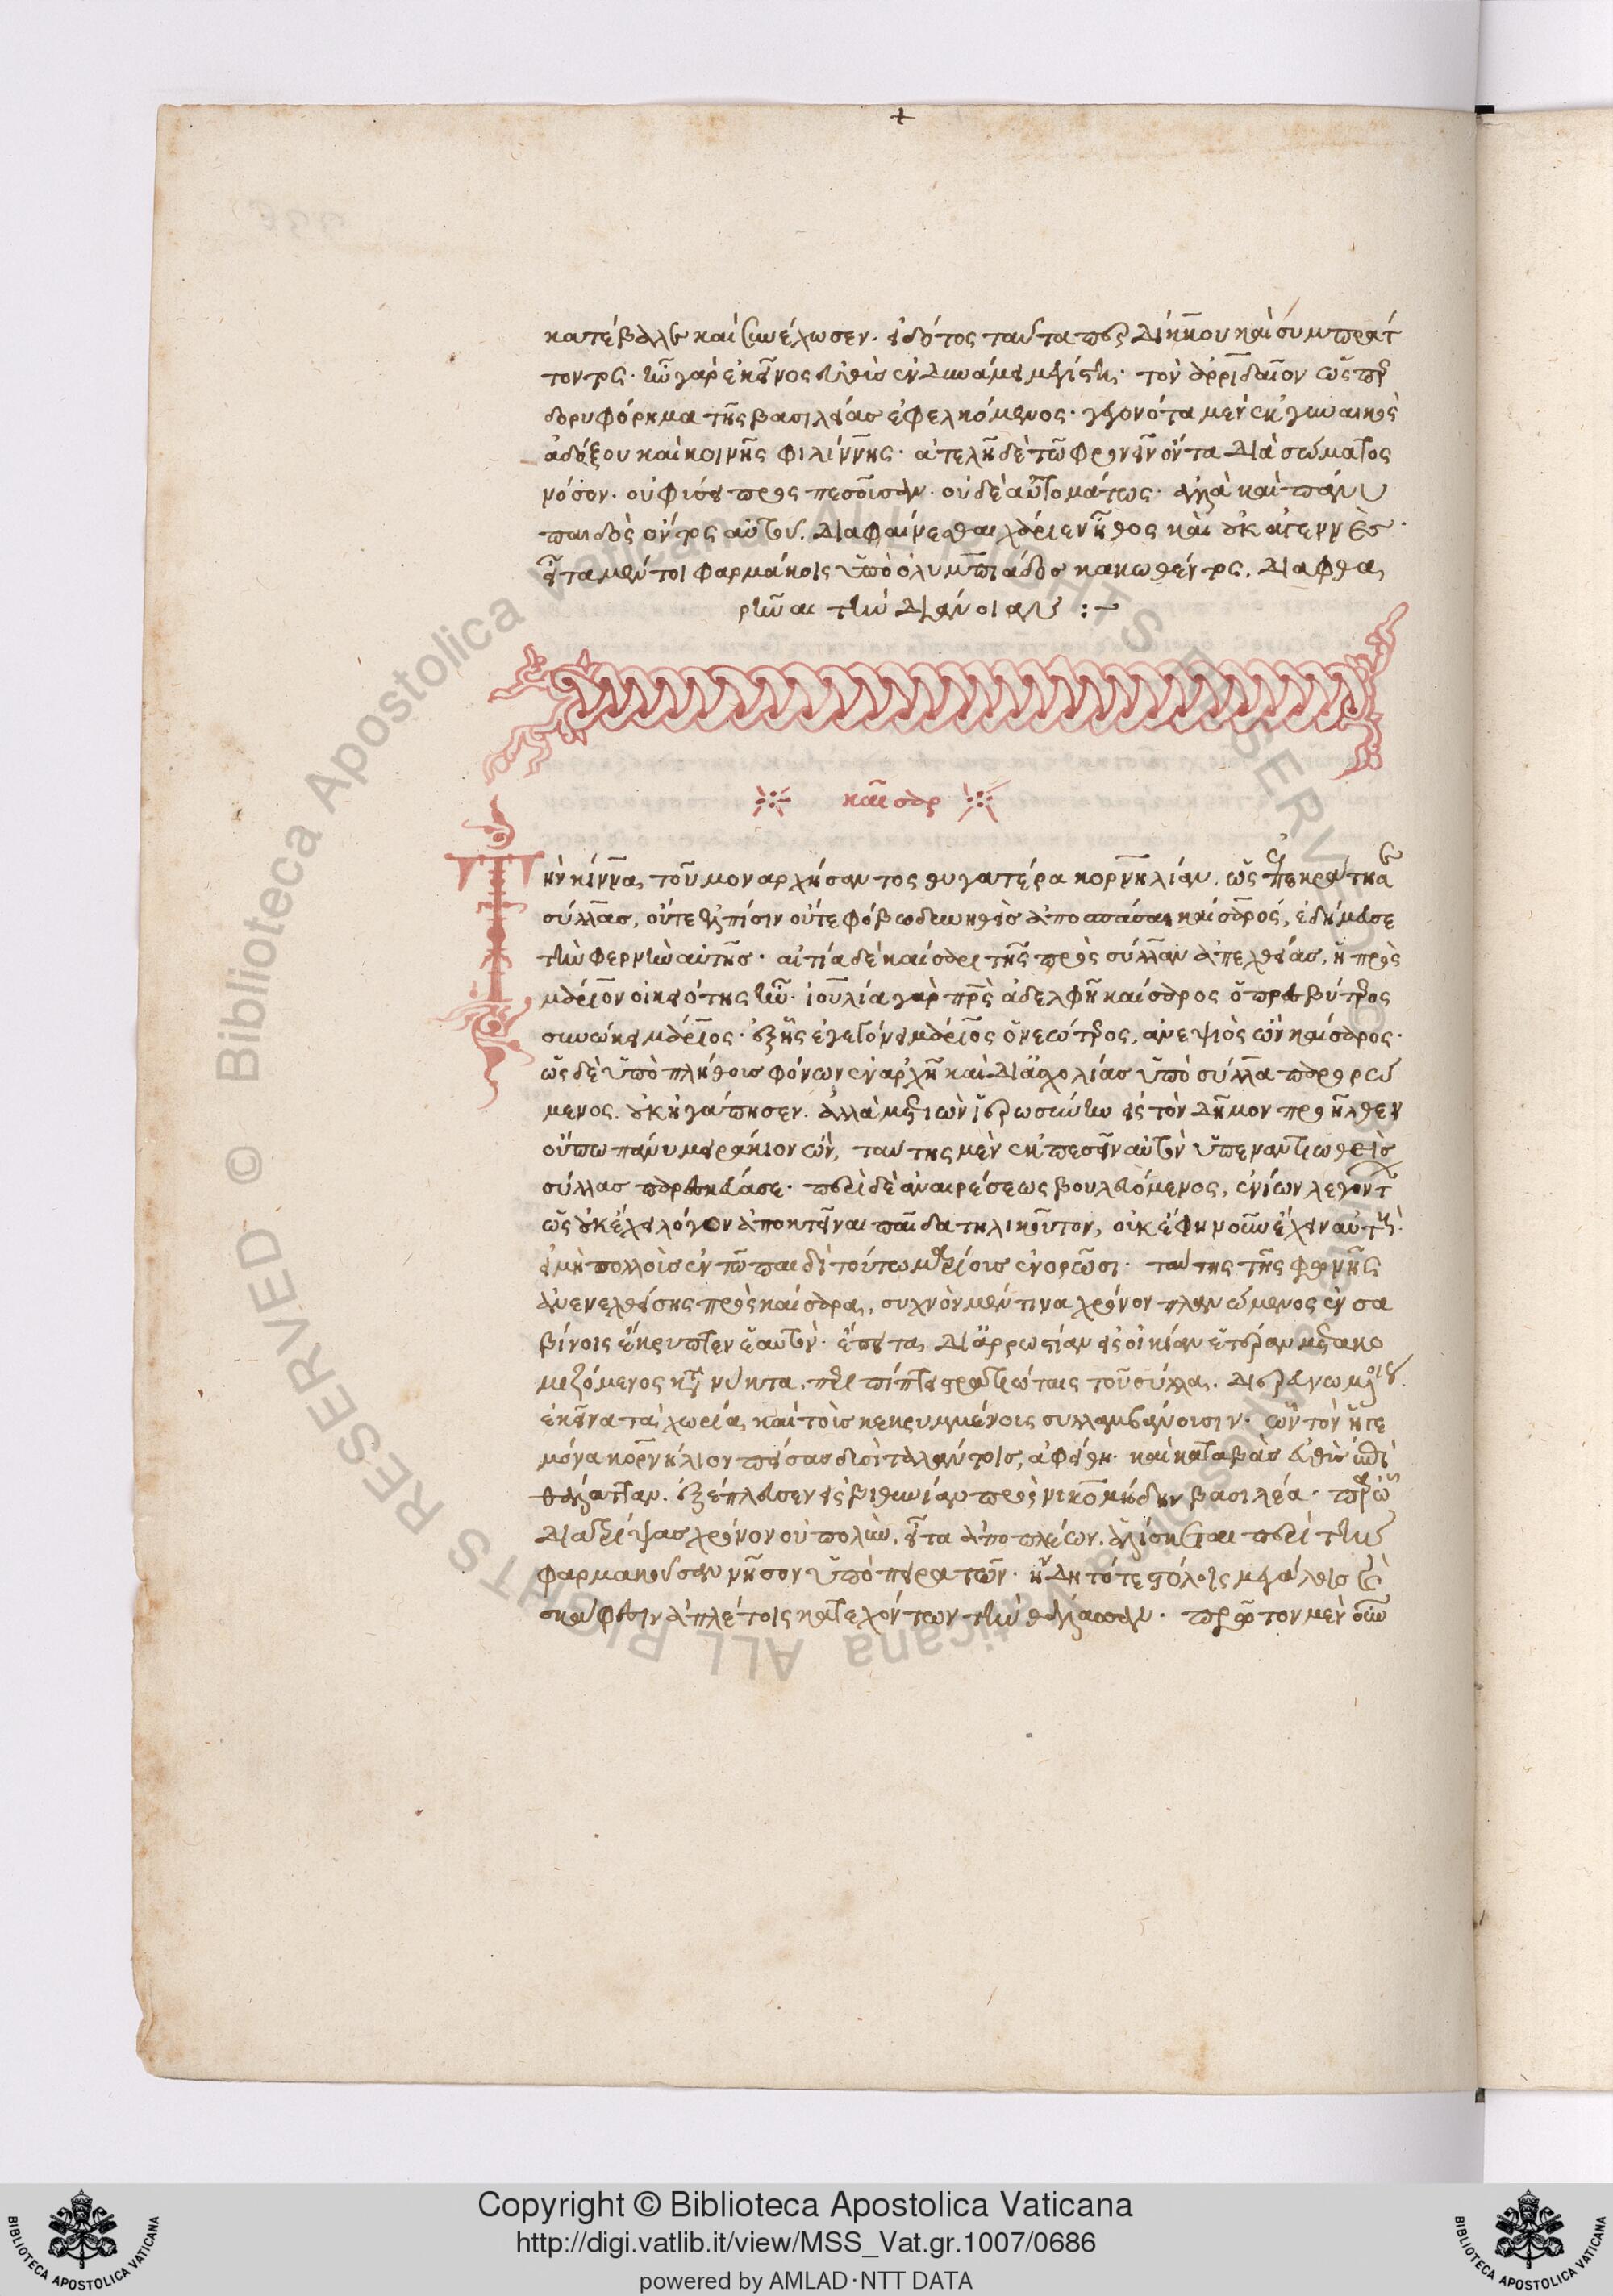 κατέβαλε καὶ συνέχωσεν· εἰδότος ταῦτα περδίκκου καὶ συμπράτ
τοντος· ἦν γὰρ ἐκεῖνος εὐθὺς ἐν δυνάμει μεγίστη· τὸν ἀρριδαῖον ὥσπερ
δορυφόρημα τῆς βασιλείας ἐφελκόμενος· γεγονότα μὲν ἐκ γυναικὸς
ἀδόξου καὶ κοινῆς φιλίννης· ἀτελῆ δὲ τῶ φρονεῖν ὄντα διὰ σώματος
νόσον· οὐ φύσει προσπεσοῦσαν· οὐδὲ αὐτομάτως· ἀλλὰ καὶ πάνυ
παιδὸς ὄντος αὐτοῦ, διαφαίνεσθαι χάριεν ἦθος καὶ οὐκ ἀγεννὲς·
εἶτα μέντοι φαρμάκοις ὑπὸ ὀλυμπιάδος κακωθέντος, διαφθα
ρῆναι τὴν διάνοιαν :~
καῖσαρ
Τὴν κίννα τοῦ μοναρχήσαντος θυγατέρα κορνηλίαν, ὡς ἐπεκράτησε
σύλλας, οὔτε ἐλπίσιν οὔτε φόβω δυνηθεὶς ἀποσπάσαι καίσαρος, ἐδήμευσε
τὴν φερνὴν αὐτῆς· αἰτία δὲ καίσαρι τῆς πρὸς σύλλαν ἀπεχθείας, ἡ πρὸς
μάριον οἰκειότης ἦν· ἰουλία γὰρ πατρὸς ἀδελφῆ καίσαρος ὁ πρεσβύτερος
συνώκει μάριος· ἐξ ἧς ἐγεγόνει μάριος ὁ νεώτερος, ἀνεψιὸς ὢν καίσαρος·
ὡς δὲ ὑπὸ πλήθους φόνων ἐν ἀρχῆ καὶ δι' ἀσχολίας ὑπὸ σύλλα παρορώ
μενος. οὐκ ἠγάπησεν. ἀλλὰ μετιὼν ἱερωσύνην εἰς τὸν δῆμον προῆλθεν
οὔπω πάνυ μειράκιον ὤν, ταύτης μὲν ἐκπεσεῖν αὐτὸν ὑπεναντιωθεὶς
σύλλας παρεσκεύασε· περὶ δὲ ἀναιρέσεως βουλευόμενος, ἐνίων λεγόντων
ὡς οὐκ ἔχει λόγον ἀποκτεῖναι παῖδα τηλικοῦτον, οὐκ ἔφη νοῦν ἔχειν αὐτοὺς·
εἰ μὴ πολλοὺς ἐν τῶ παιδὶ τούτω μαρίους ἐνορῶσι· ταύτης τῆς φωνῆς
ἀνενεχθείσης πρὸς καίσαρα, συχνὸν μέν τινα χρόνον πλανώμενος ἐν σα
βίνοις ἔκρυπτεν ἑαυτὸν· ἔπειτα δι' ἀρρωστίαν εἰς οἰκίαν ἑτέραν μετακο
μιζόμενος κατὰ νύκτα, περιπίπτει στρατιώταις τοῦ σύλλα, διερευνωμένοις
ἐκεῖνα τὰ χωρία καὶ τοὺς κεκρυμμένους συλλαμβάνουσιν· ὧν τὸν ἡγε
μόνα κορνήλιον πείσας δυσὶ ταλάντοις, ἀφείθη· καὶ καταβὰς εὐθὺς ἐπὶ
θάλατταν. ἐξέπλευσεν εἰς βιθυνίαν πρὸς νικομήδην βασιλέα· παρ' ᾧ
διατρίψας χρόνον οὐ πολὺν, εἶτα ἀποπλέων, ἁλίσκεται περὶ τὴν
φαρμακοῦσαν νῆσον ὑπὸ πειρατῶν· ἤδη τότε στόλοις μεγάλοις καὶ
σκάφεσιν ἀπλέτοις κατεχόντων τὴν θάλασσαν· πρῶτον μὲν οὖν
Copyright © Biblioteca Apostolica Vaticana
http://digi.vatlib.it/view/MSS_Vat.gr.1007/0686
powered by AMLAD·NTT DATA